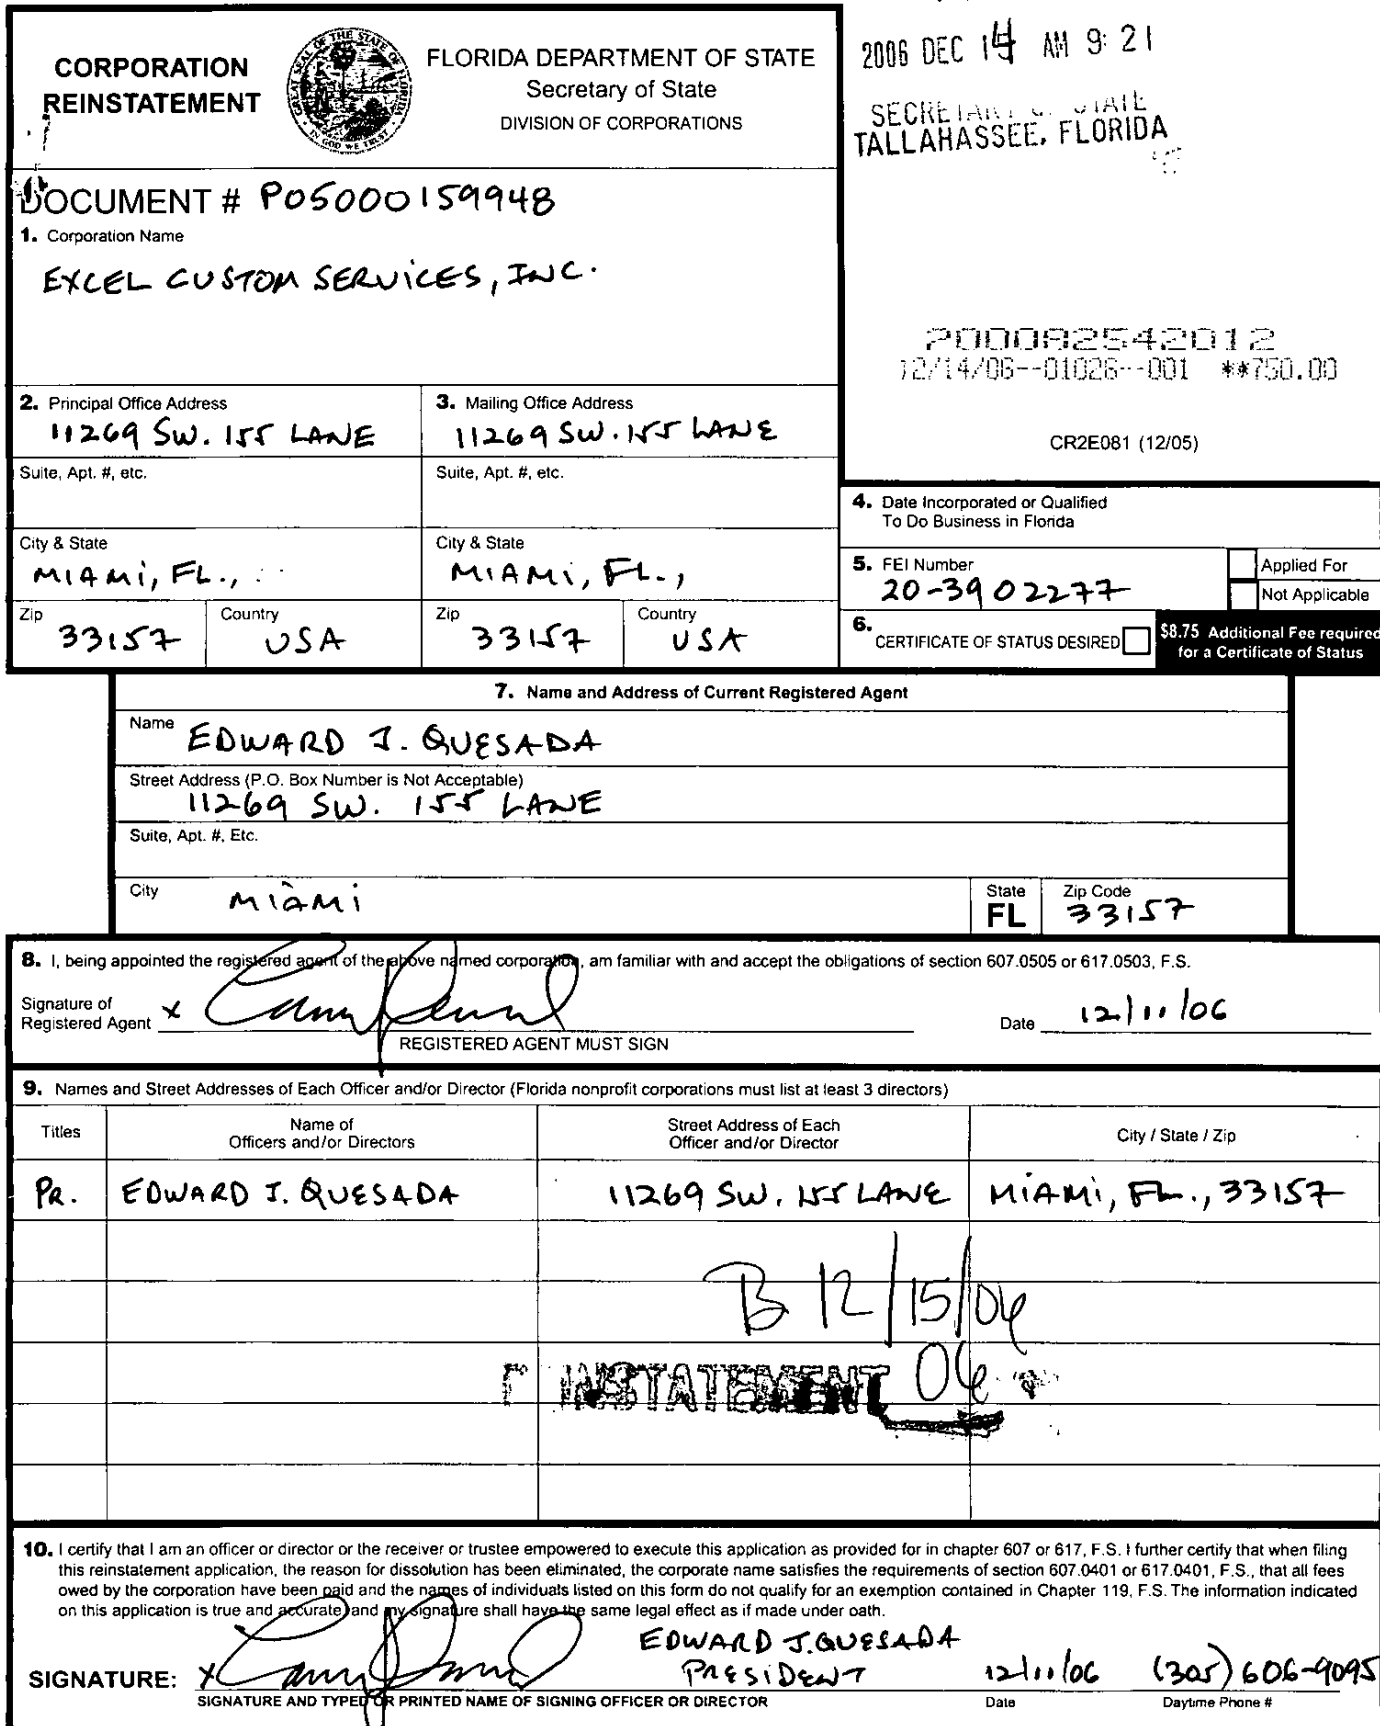 CORPORATION
REINSTATEMENT
FLORIDA DEPARTMENT OF STATE
Secretary of State
DIVISION OF CORPORATIONS
2006 DEC 14 AM 9: 21
STATE
TALLAHASSEE, FLORIDA
DOCUMENT # P05000159948
1. Corporation Name
EXCEL CUSTOM SERVICES, INC.
200082542012
12/14/06--01026--001 **750.00
CR2E081 (12/05)
2. Principal Office Address
11269 SW. 155 LANE
3. Mailing Office Address
11269 SW. 155 LANE
Suite, Apt. #, etc.
Suite, Apt. #, etc.
City & State
MIAMI, FL.,
City & State
MIAMI, FL.,
Zip
33157
Country
USA
Zip
33157
Country
USA
4. Date Incorporated or Qualified
To Do Business in Florida
5. FEI Number
20-3902277
Applied For
Not Applicable
6. CERTIFICATE OF STATUS DESIRED
$8.75 Additional Fee required
for a Certificate of Status
7. Name and Address of Current Registered Agent
Name EDWARD J. QUESADA
Street Address (P.O. Box Number is Not Acceptable)
11269 SW. 155 LANE
Suite, Apt. #, Etc.
City MIAMI
State
FL
Zip Code
33157
8. I, being appointed the registered agent of the above named corporation, am familiar with and accept the obligations of section 607.0505 or 617.0503, F.S.
Signature of
Registered Agent X
Date 12/11/06
REGISTERED AGENT MUST SIGN
9. Names and Street Addresses of Each Officer and/or Director (Florida nonprofit corporations must list at least 3 directors)
Titles
Name of
Officers and/or Directors
Street Address of Each
Officer and/or Director
City / State / Zip
PR. EDWARD J. QUESADA 11269 SW. 155 LANE MIAMI, FL., 33157
B 12/15/06
INSTATEMENT 06
10. I certify that I am an officer or director or the receiver or trustee empowered to execute this application as provided for in chapter 607 or 617, F.S. I further certify that when filing
this reinstatement application, the reason for dissolution has been eliminated, the corporate name satisfies the requirements of section 607.0401 or 617.0401, F.S., that all fees
owed by the corporation have been paid and the names of individuals listed on this form do not qualify for an exemption contained in Chapter 119, F.S. The information indicated
on this application is true and accurate and my signature shall have the same legal effect as if made under oath.
EDWARD J. QUESADA
SIGNATURE: X PRESIDENT 12/11/06 (305) 606-9095
SIGNATURE AND TYPED OR PRINTED NAME OF SIGNING OFFICER OR DIRECTOR
Date
Daytime Phone #